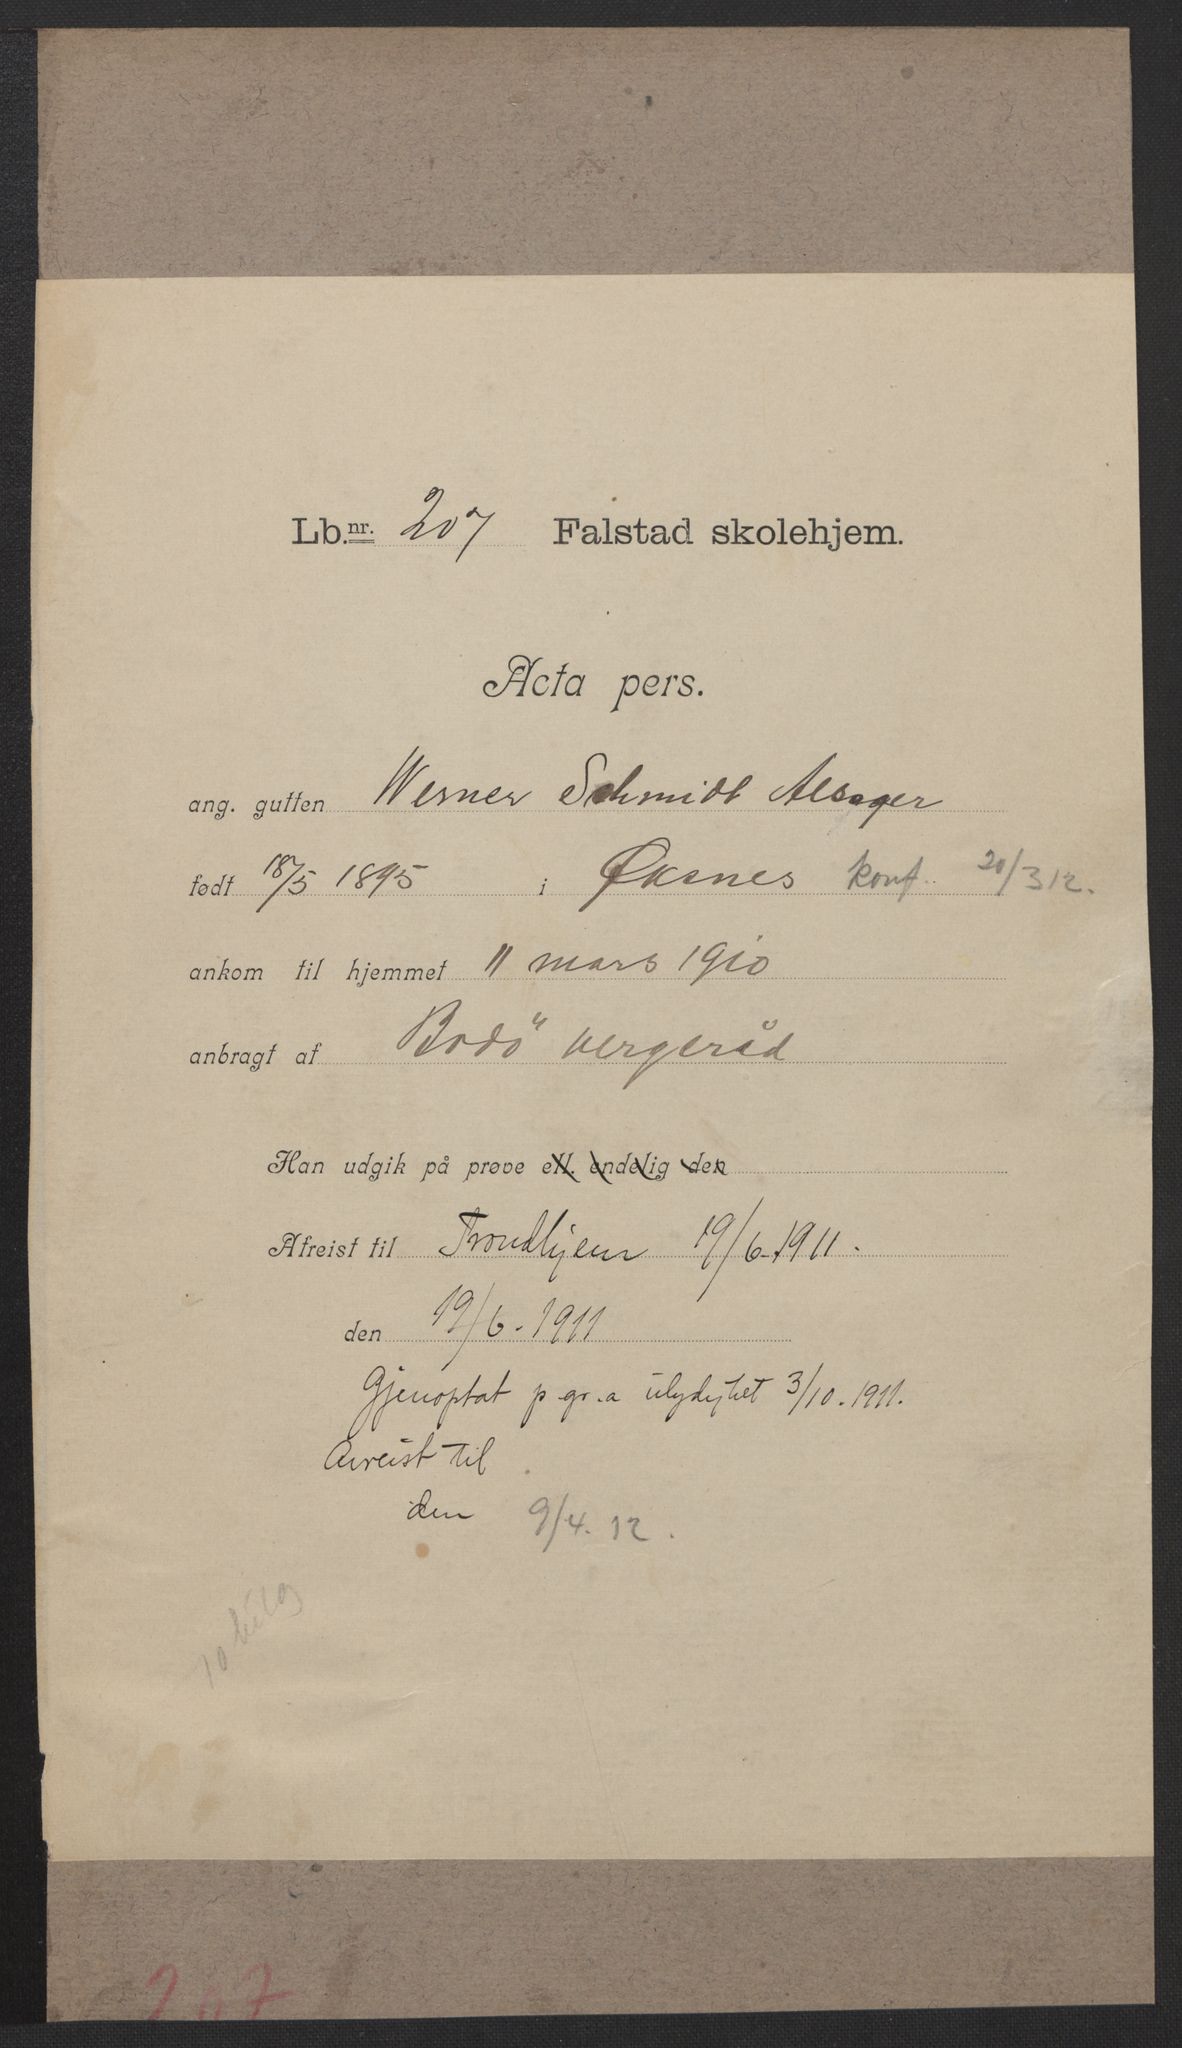 Lb.nr. 207 Falstad skolehjem.
Acta pers.
ang. gutten Werner Schmidt Alsager
født 18/5 1895 i Øksnes konf. 20/3 12.
ankom til hjemmet 11 mars 1910
anbragt af Bodö vergeråd
Han udgik på prøve ell. endelig den
Afreist til Trondhjem 19/6-1911.
den 19/6-1911
Gjenoptat p.gr.a ulydighet 3/10.1911.
Avreist til
den 9/4.12.
10
207